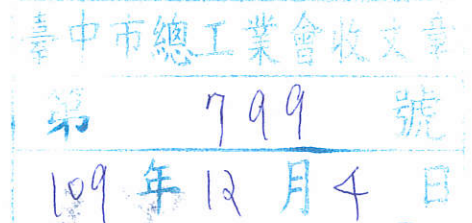 臺中市總工業會收文章
第 799 號
109 年 12 月 4 日